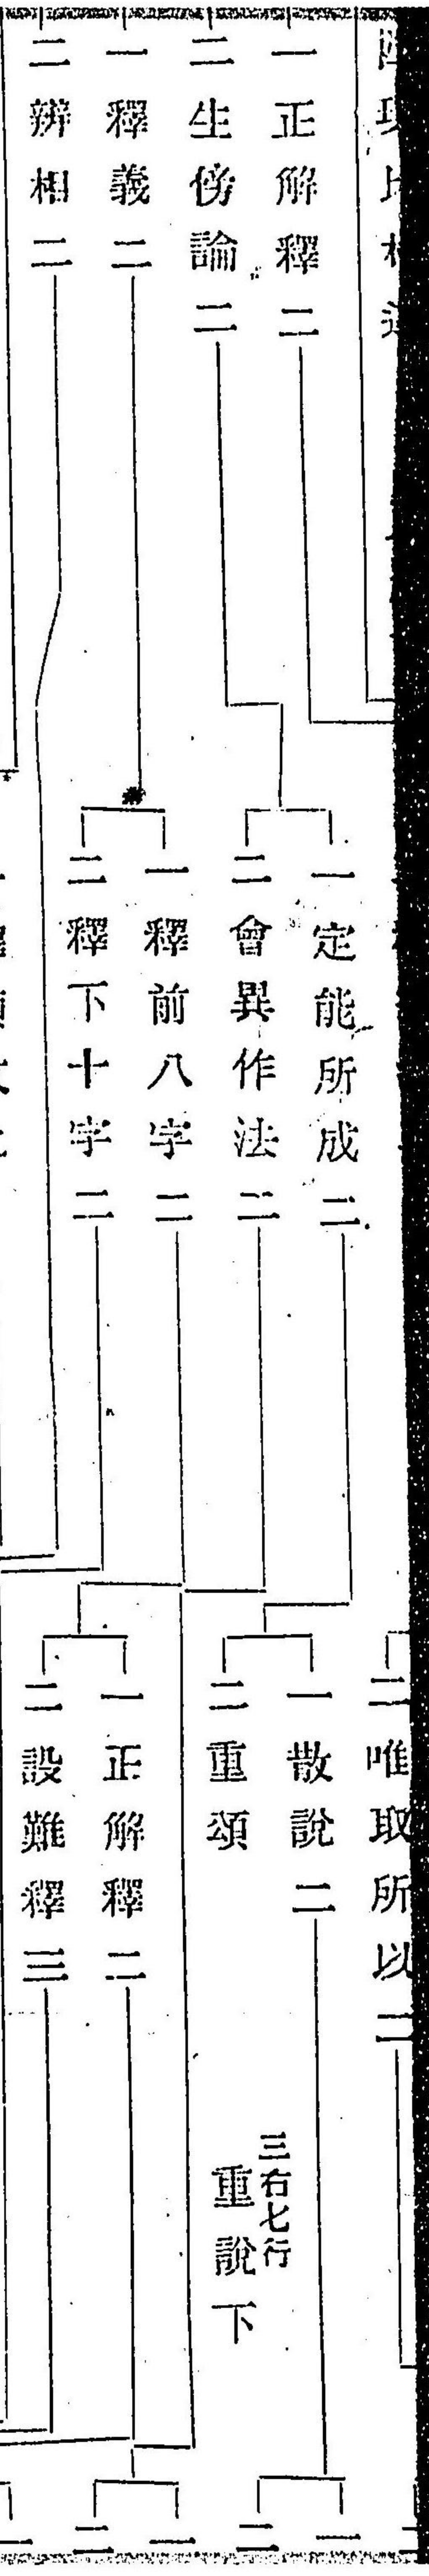 一正解釋二
二生傍論二
一釋義二
二辨相二
一定能所成二
二會異作法二
一釋前八字二
二釋下十字二
二唯取所以二
一散說二
二重頌
三右七行
重說下
一正解釋二
二設難釋三
一
二
一
二
一